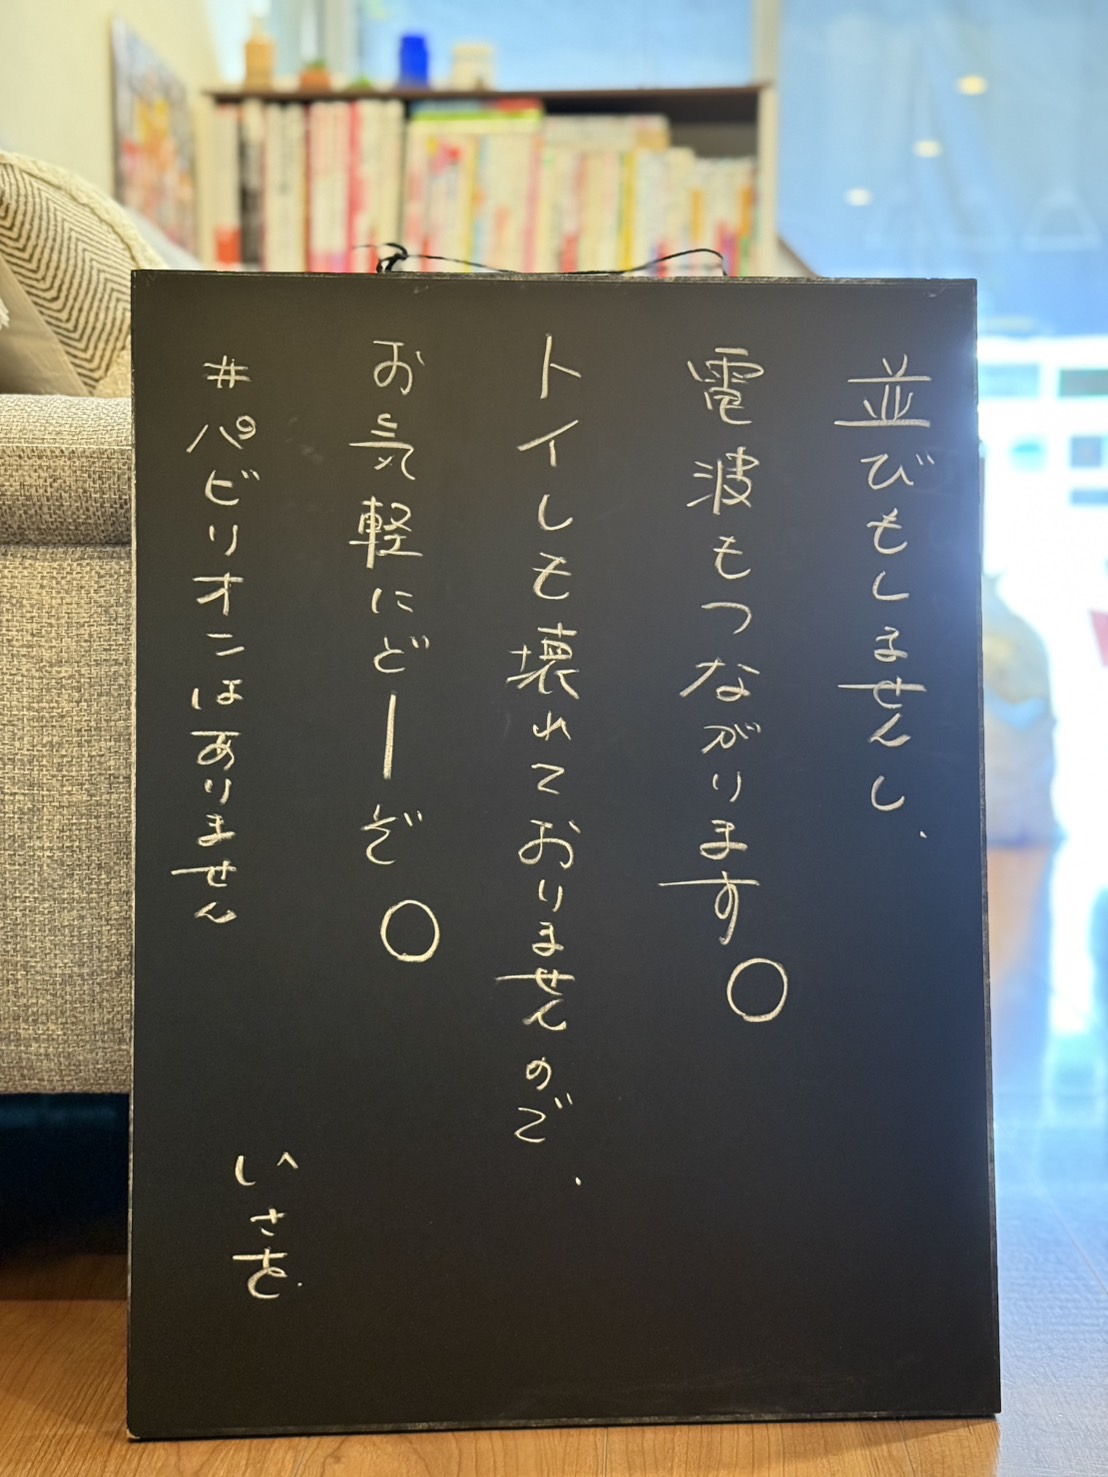 並びもしませんし、
電波もつながります。
トイレも壊れておりませんので、
お気軽にどーぞ。
#パビリオンはありません
いさを